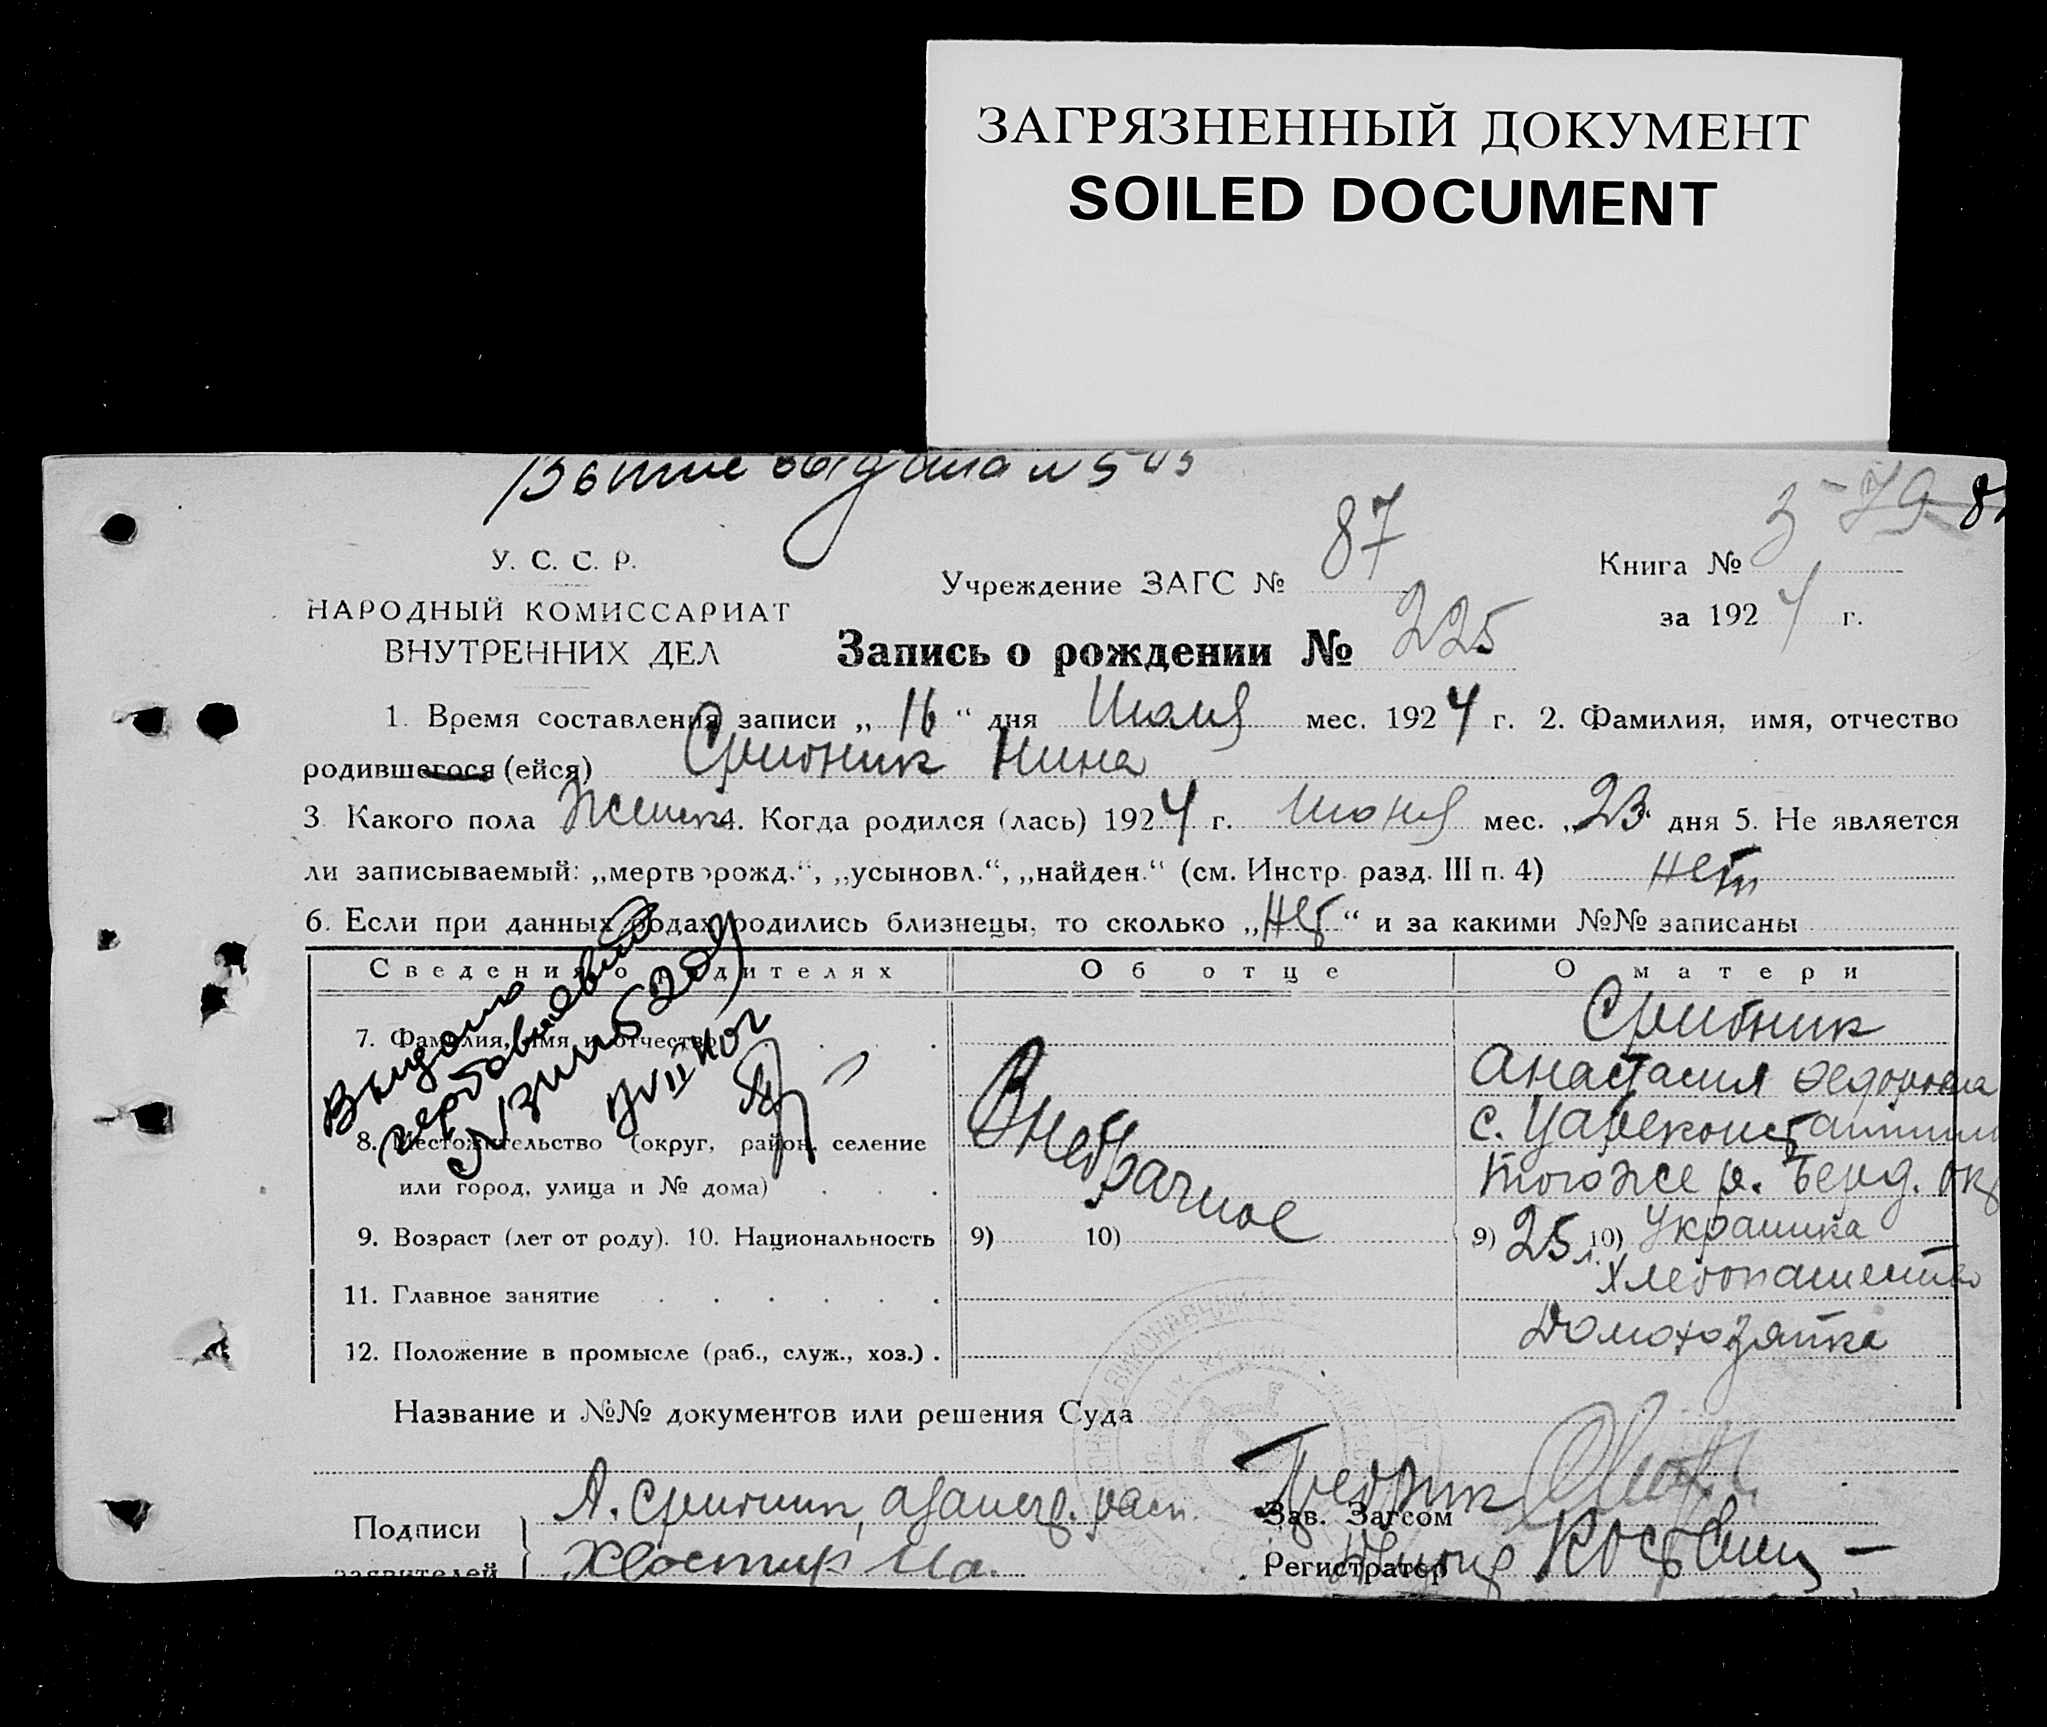 ЗАГРЯЗНЕННЫЙ ДОКУМЕНТ
SOILED DOCUMENT
выдана
3 79
У. С. С. Р.
НАРОДНЫЙ КОМИССАРИАТ
ВНУТРЕННИХ ДЕЛ
Учреждение ЗАГС № 87
Книга № 3
за 1924 г.
Запись о рождении № 225
1. Время составления записи „ 16 “ дня Июля мес. 1924 г. 2. Фамилия, имя, отчество
родившегося (ейся) Срибник Нина
3. Какого пола Женск 4. Когда родился (лась) 1924 г. Июня мес. „23 дня 5. Не является
ли записываемый: „мертворожд.“, „усыновл.“, „найден.“ (см. Инстр. разд. III п. 4) нет
6. Если при данных родах родились близнецы, то сколько „нет“ и за какими №№ записаны
Сведения о родителях Об отце О матери
7. Фамилия, имя и отчество Срибник
Анастасия Федоровна
8. Местожительство (округ, район, селение с. Цареконстантин
или город, улица и № дома) того же р. Берд. окр
Внебрачное
9. Возраст (лет от роду). 10. Национальность 9) 10) 9) 25 л. 10) Украинка
11. Главное занятие Хлебопашество
12. Положение в промысле (раб., служ., хоз.) Домохозяйка
Выдано
Название и №№ документов или решения Суда
Подписи
заявителей
А. Срибник,
Зав. Загсом
Регистратор